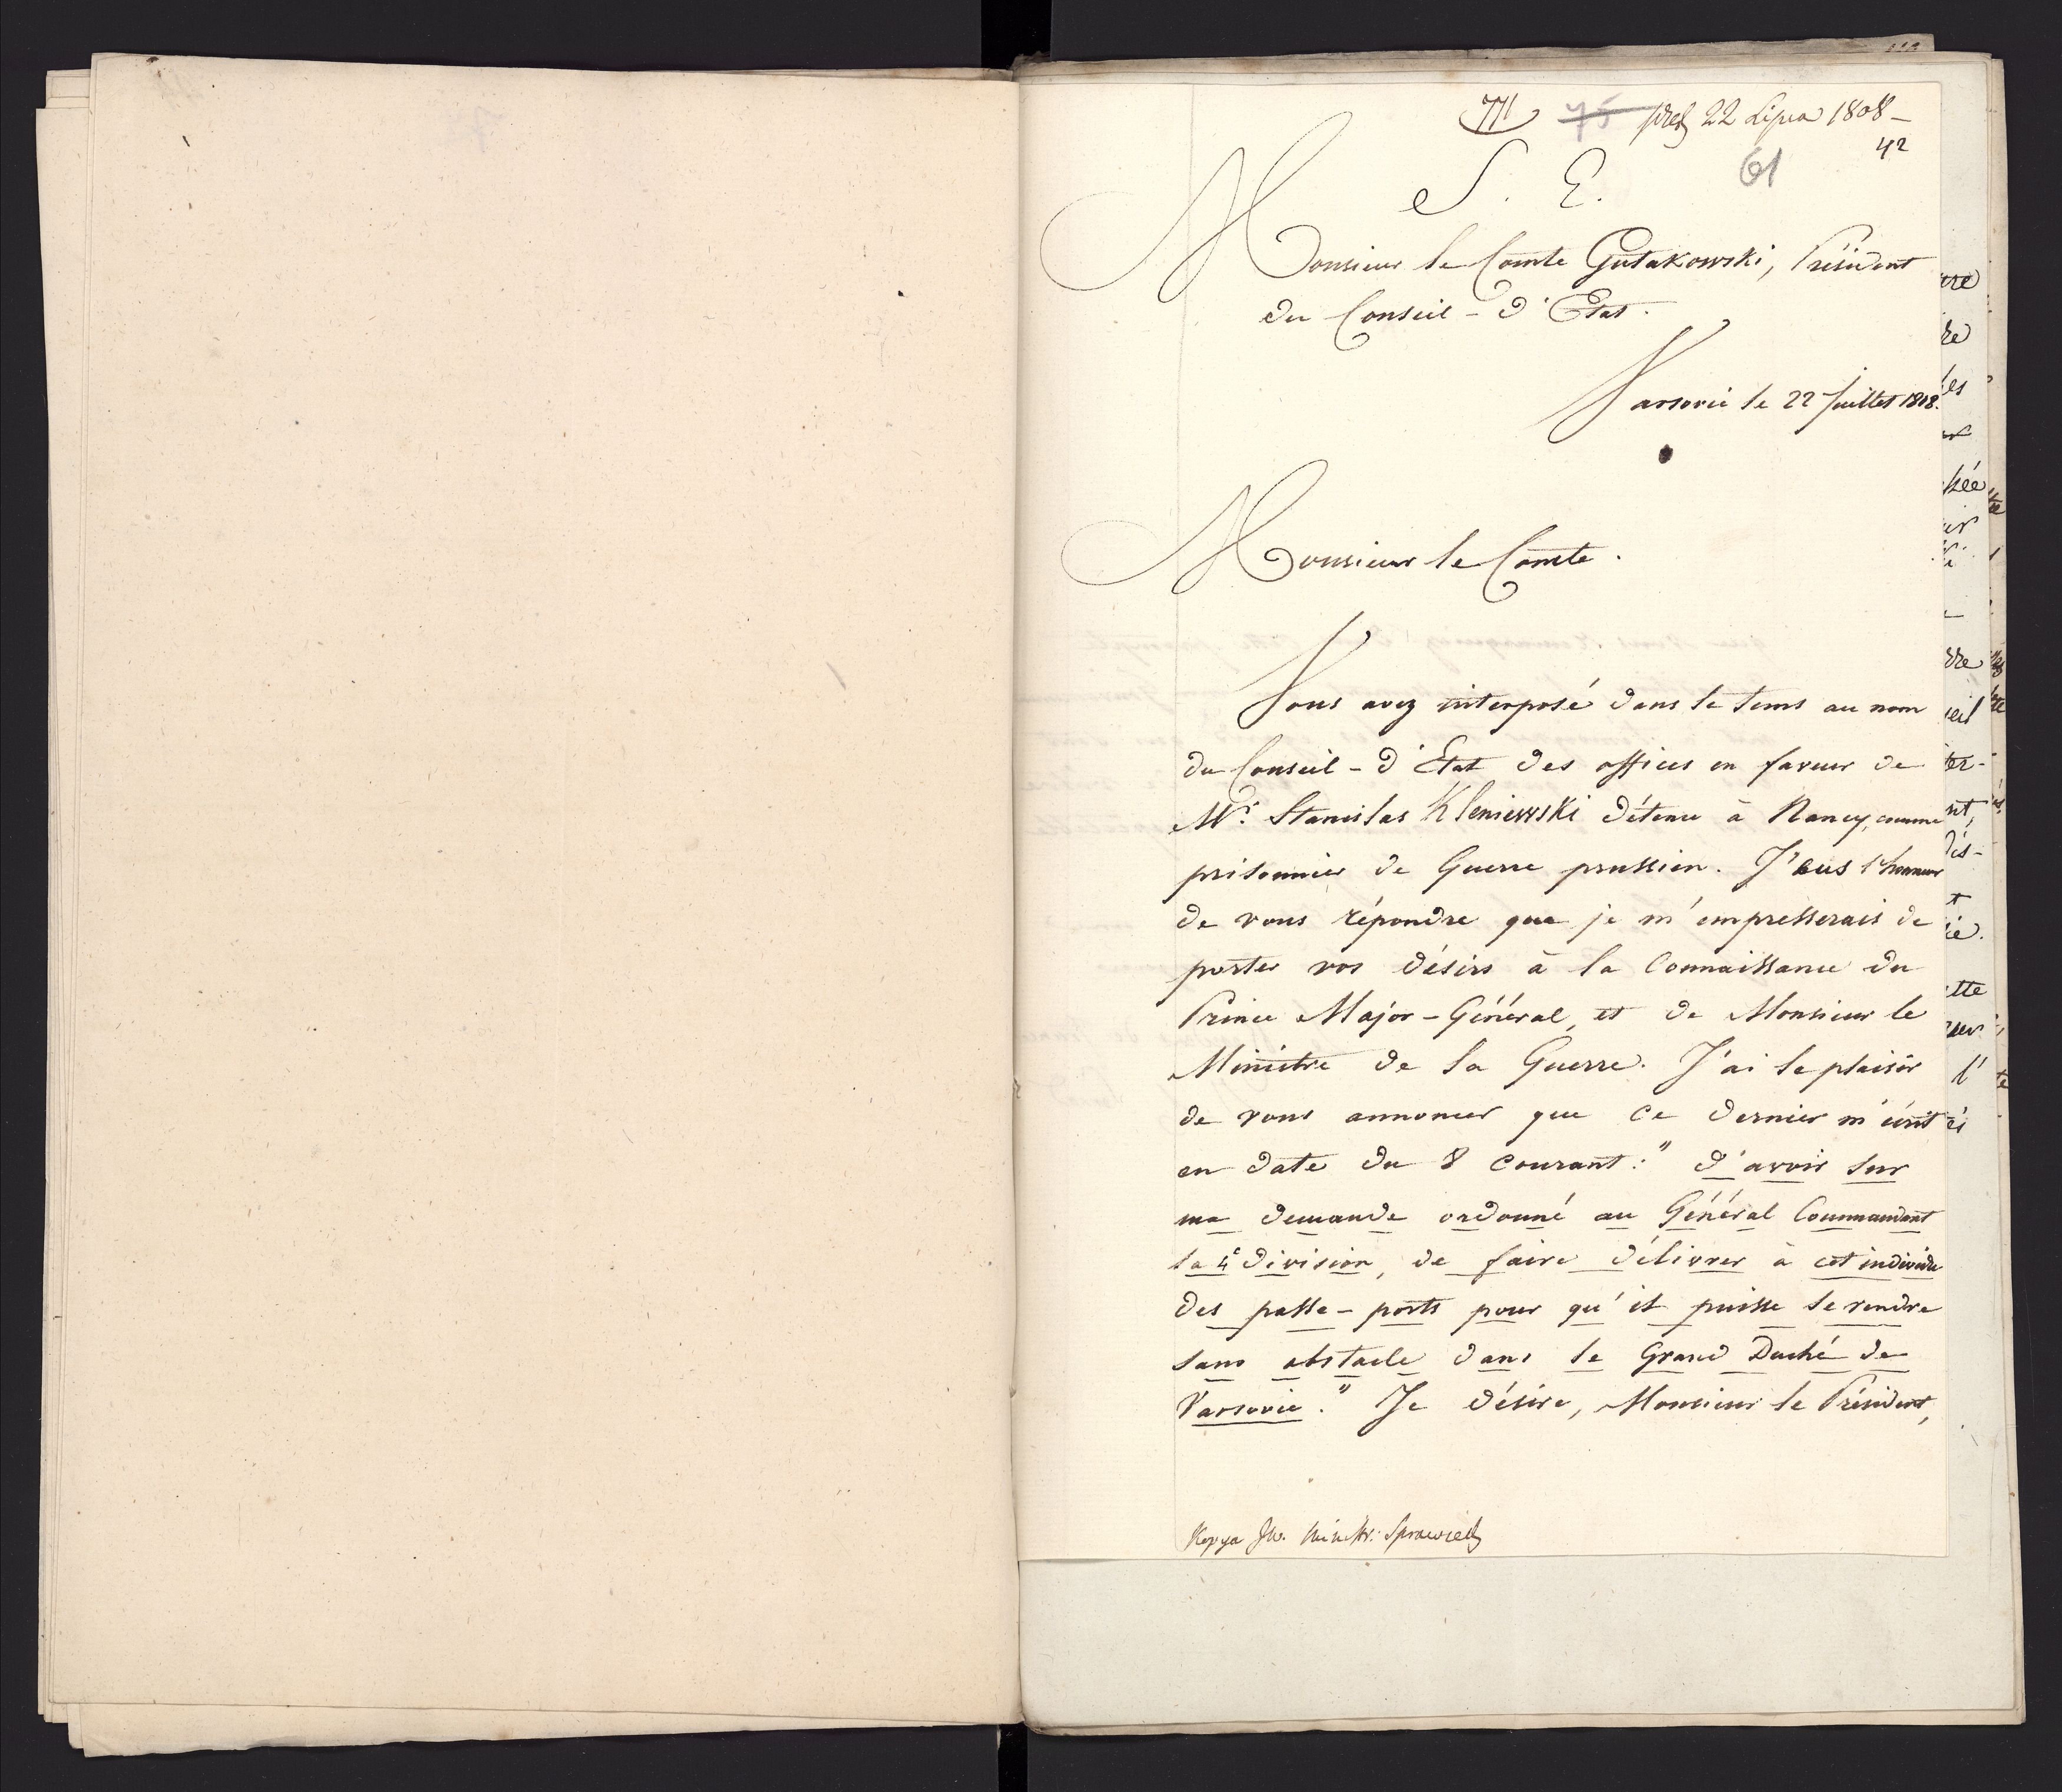 771 75 pred 22 Lipca 1808 –
42
61
S. E.
Monsieur le Comte Gutakowski, Président
du Conseil – d'Etat.
Varsovie le 22 Juillet 1808.
Monsieur le Comte.
Vous avez interposé dans le tems au nom
du Conseil – d'Etat des offices en faveur de
Mr. Stanislas Kleniewski détenu à Nancy, comme
prisonnier de Guerre prussien. J'eus l'honneur
de vous répondre que je m'empresserais de
porter vos désirs à la Connaissance du
Prince Major – Général, et de Monsieur le
Ministre de la Guerre. J'ai le plaisir
de vous annoncer que ce dernier m'écrit
en date du 8 courant: " d'avoir sur
ma demande ordonné au Général Commandant
la 4e division, de faire délivrer à cet individu
des passe – ports pour qu'il puisse se rendre
sans obstacle dans le Grand Duché de
Varsovie." Je désire, Monsieur le Président,
Kopya JW. Ministr: Sprawied